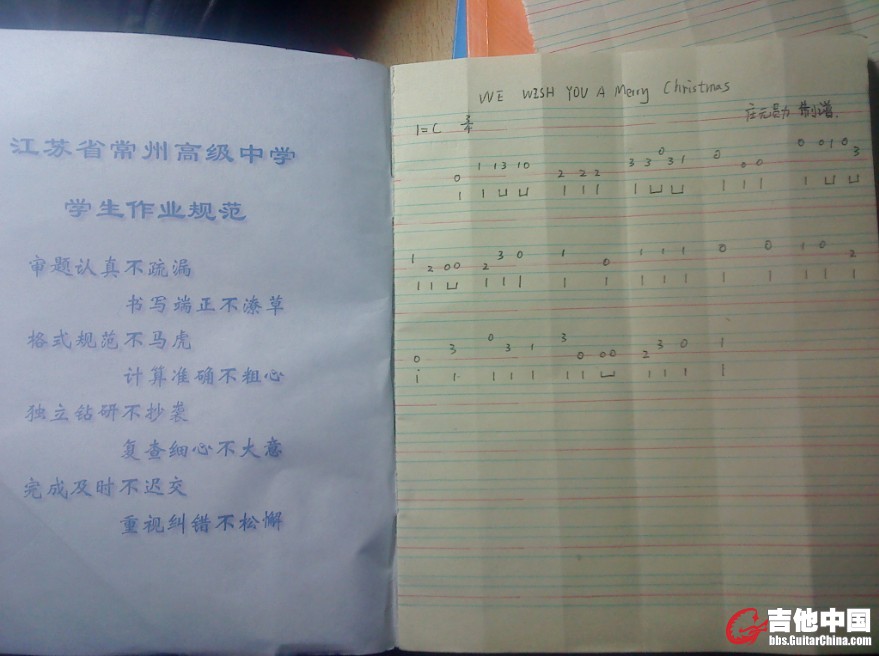 江苏省常州高级中学
学生作业规范
审题认真不疏漏
书写端正不潦草
格式规范不马虎
计算准确不粗心
独立钻研不抄袭
复查细心不大意
完成及时不迟交
重视纠错不松懈
WE WISH YOU A Merry Christmas
1=C 3/4
0 1 1 3 1 0 2 2 2 3 3 0 3 1 0 0 0 0 0 1 0 3
1 2 0 0 2 3 0 1 0 1 1 1 0 0 1 0 2
0 3 0 3 1 3 0 0 0 2 3 0 1
吉他中国
bbs.GuitarChina.com